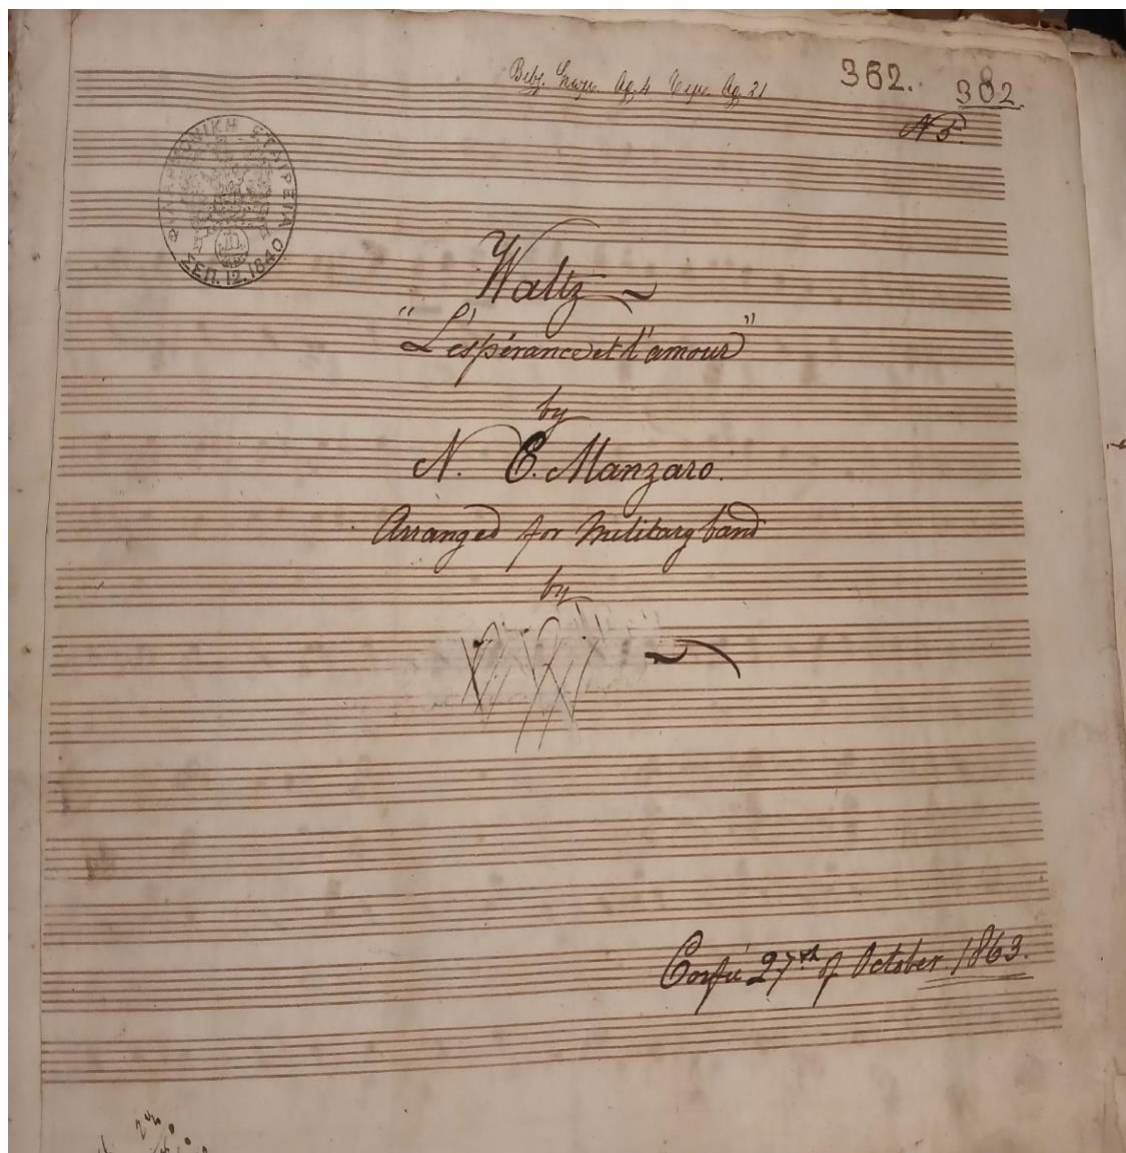 362.
382.
N 5.
ΦΙΛΑΡΜΟΝΙΚΗ ΕΤΑΙΡΕΙΑ
ΣΕΠ. 12. 1840
Waltz
"L'espérance et l'amour"
by
N. C. Manzaro.
Arranged for Military band
by
Corfu 27th of October 1863.